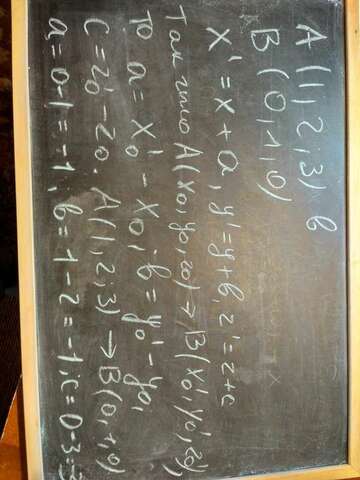 A (1, 2; 3) в
B (0, 1, 0)
x' = x + a, y' = y + в, z' = z + c
Так что A(x₀, y₀, z₀) → B(x₀', y₀', z₀')
то a = x₀' - x₀; в = y₀' - y₀,
c = z₀' - z₀. A(1, 2; 3) → B(0, 1, 0)
a = 0-1 = -1; в = 1-2 = -1; c = 0-3 = -3